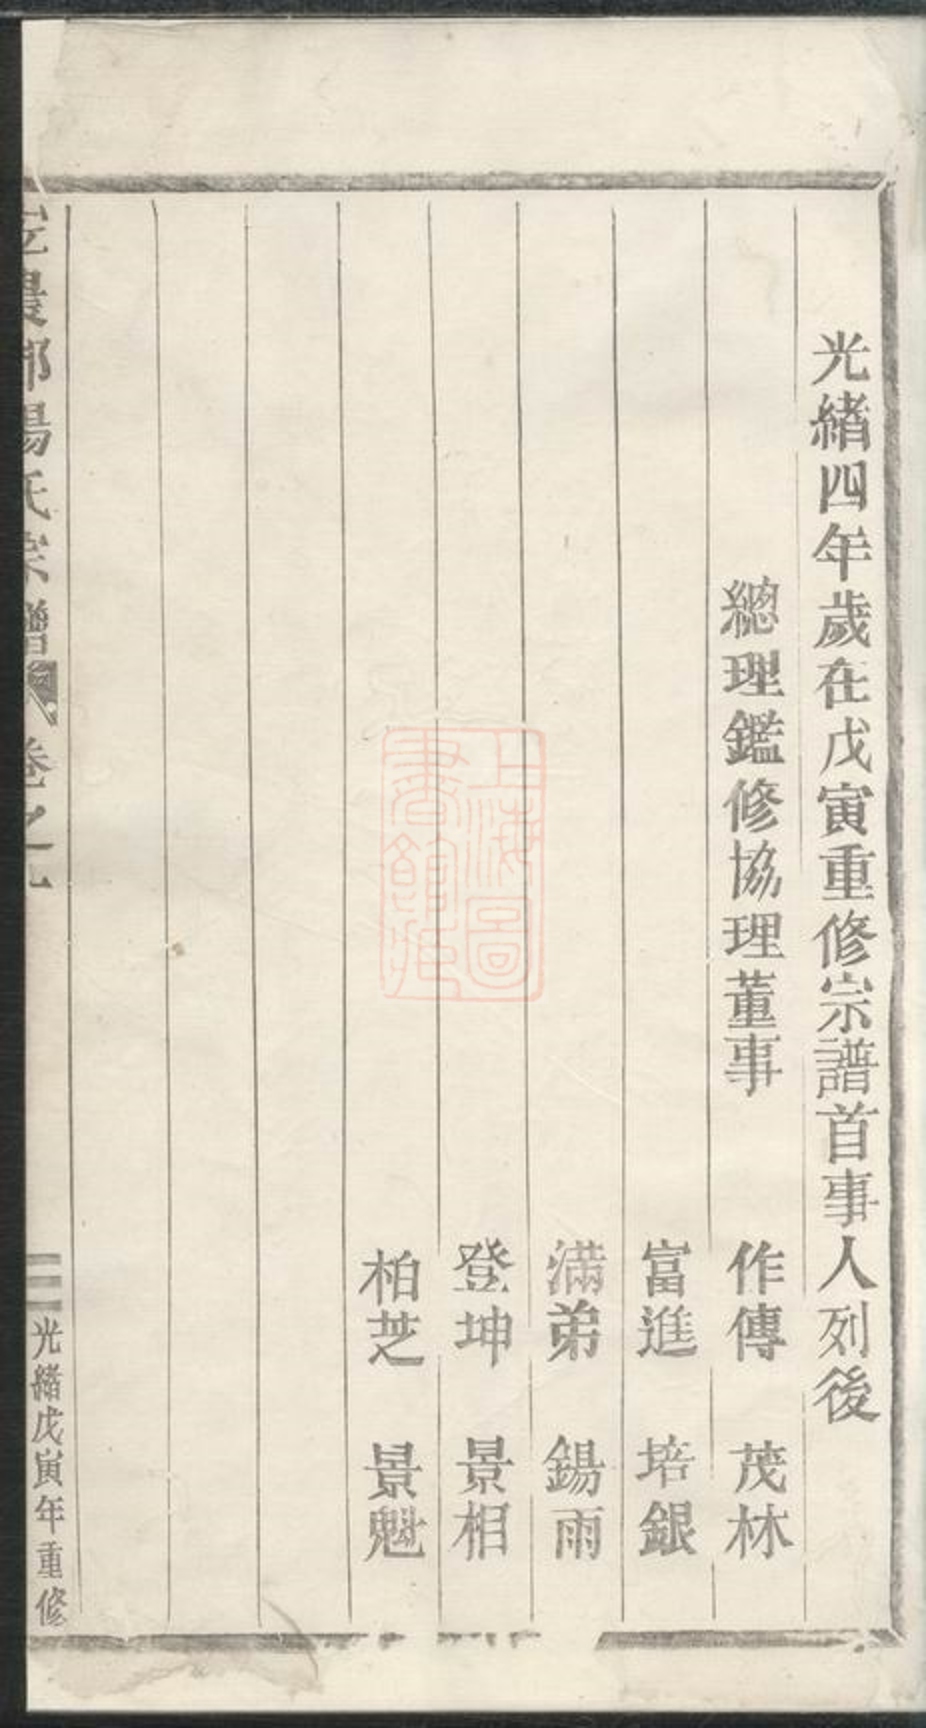 光緒四年歲在戊寅重修宗譜首事人列後
總理鑑修協理董事 作傳 茂林
富進 培銀
滿弟 錫雨
登坤 景相
柏芝 景魁
農郡楊氏宗譜 卷之九
光緒戊寅年重修
上海圖書館藏